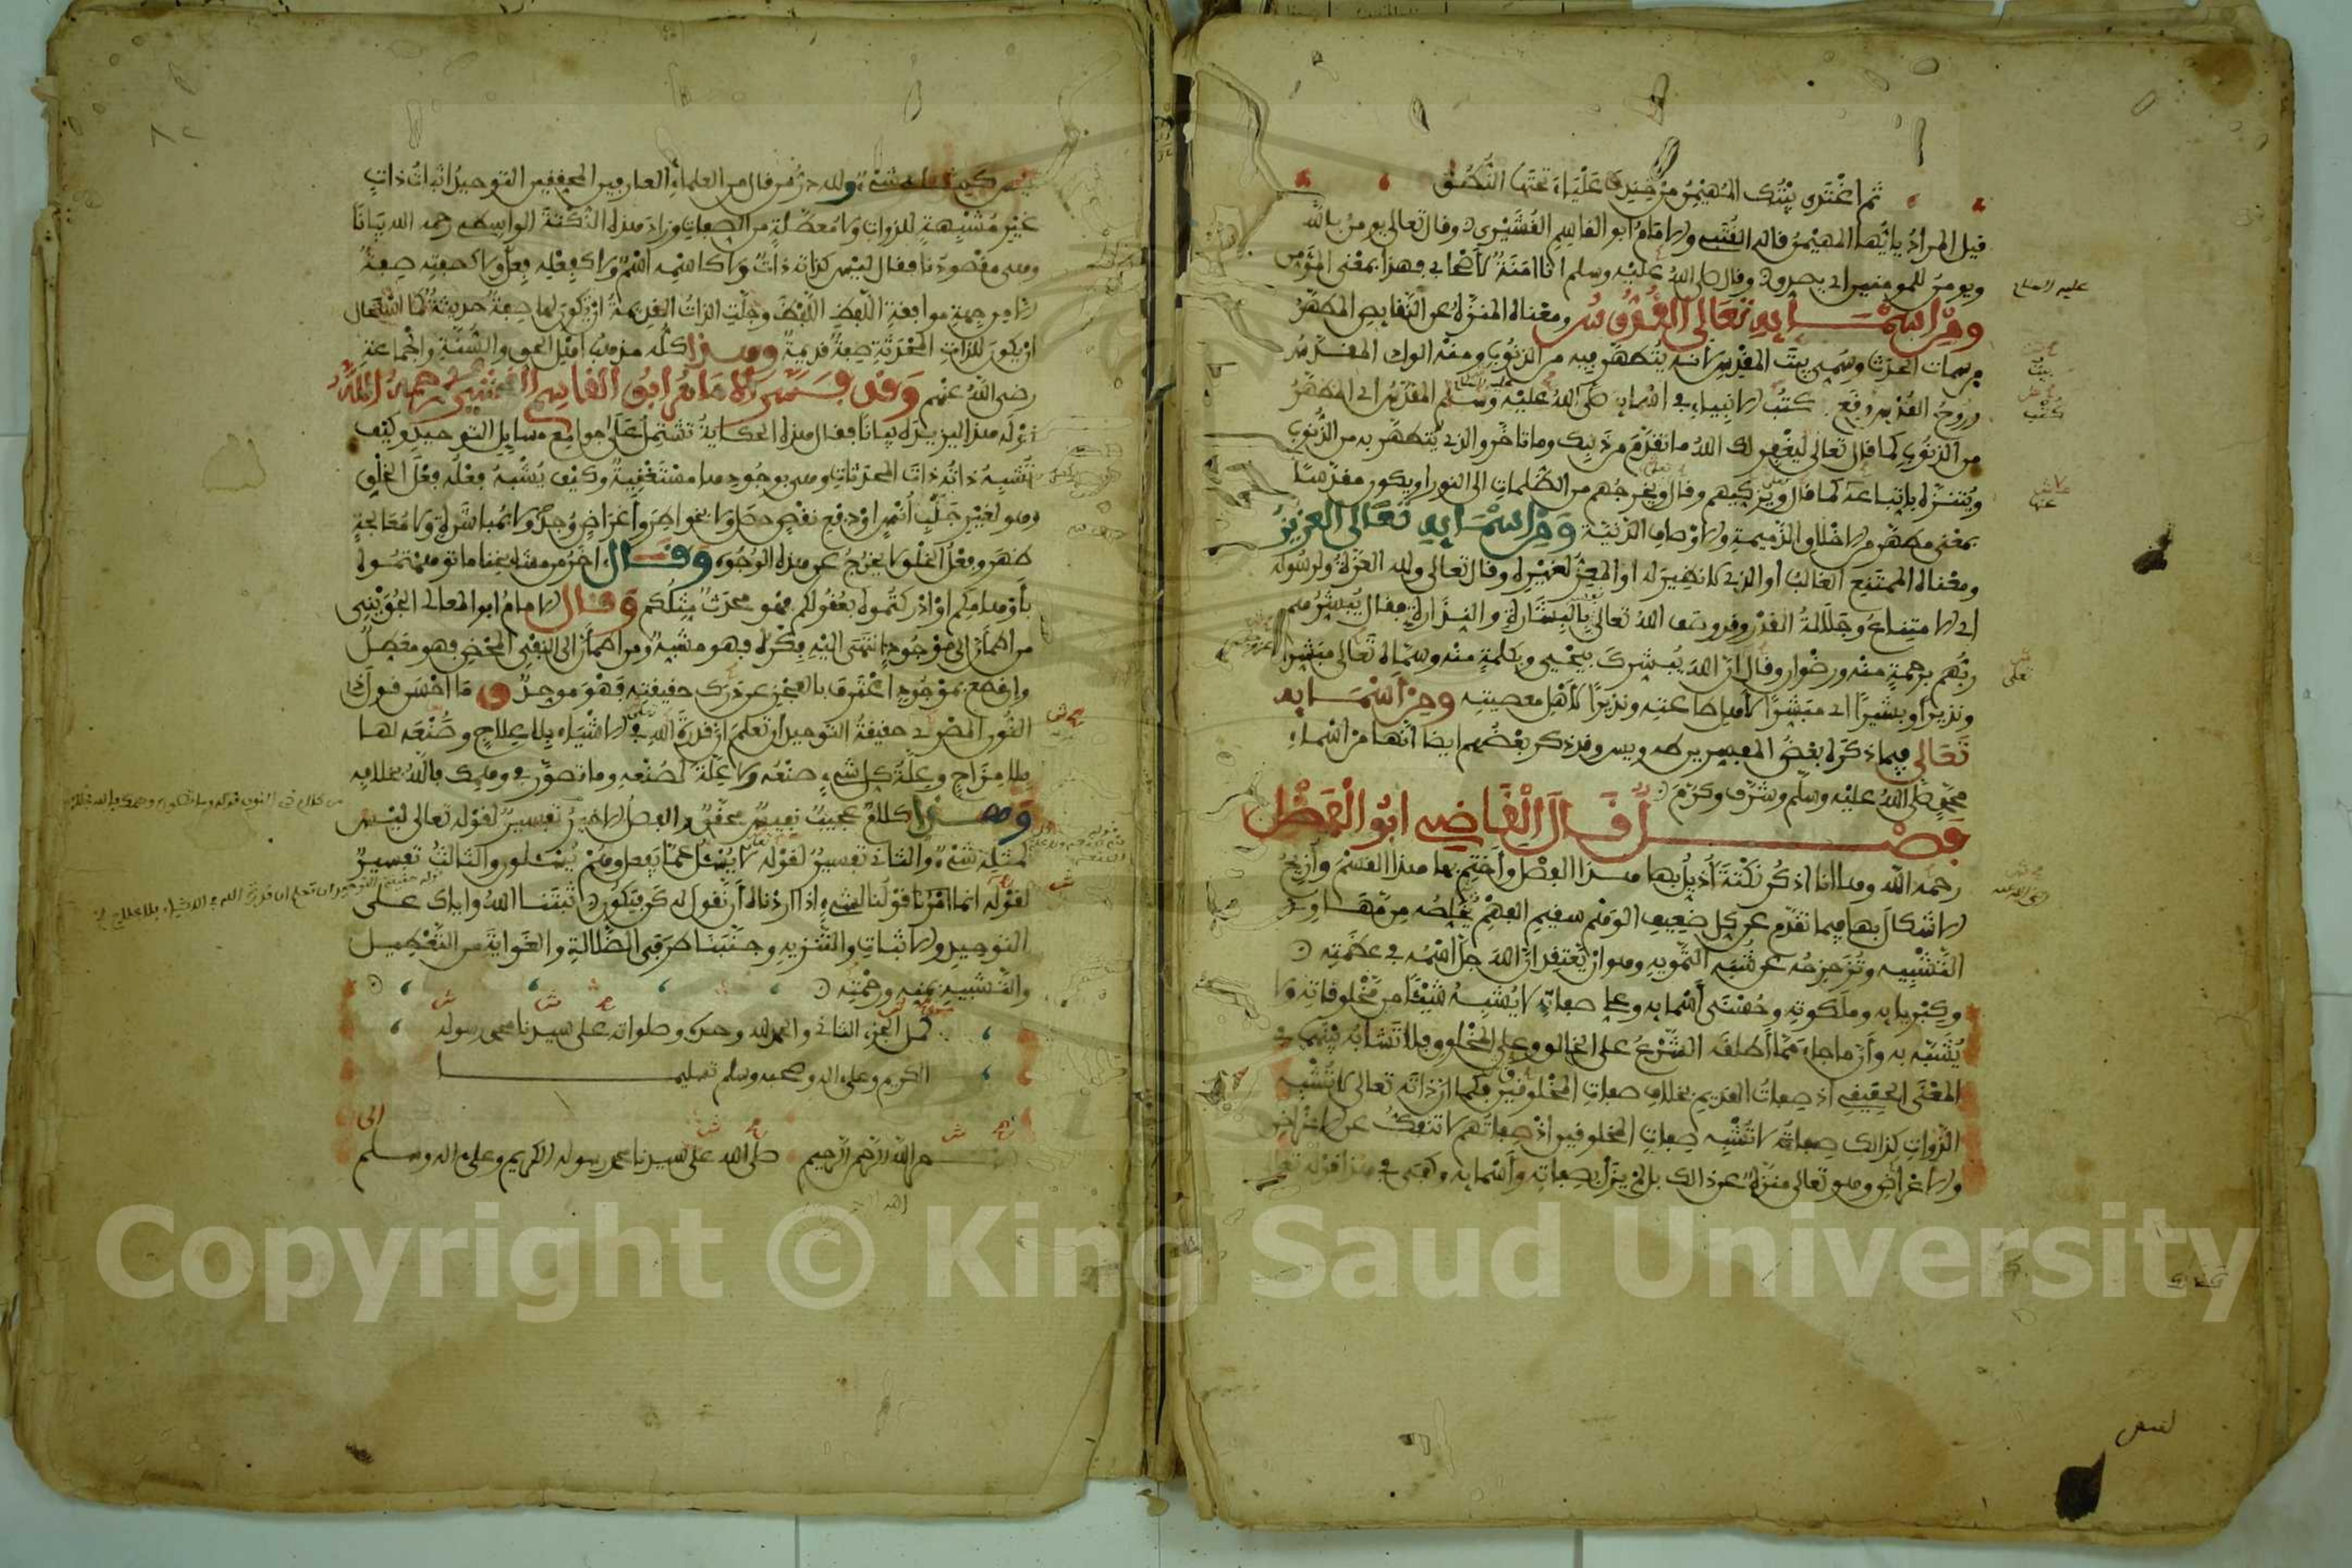 ثم اغتدى بيتك المهيمن من خندف علياء تحتها النطق
قيل المراد يا أيها المهيمن قاله القتبي والامام ابو القاسم القشيري وقال تعالى يومن بالله
ويومن للمومنين اي يصدق وقال صلى الله عليه وسلم انا امنة لاصحابي فهذا بمعنى المؤمن
ومن اسمايه تعالى القدوس ومعناه المنزه عن النقايص المطهر
من سمات الحدث وسمي بيت المقدس لانه يتطهر فيه من الذنوب ومنه الواد المقدس
وروح القدس ووقع كتب الانبياء في اسمايه صلى الله عليه وسلم المقدس اي المطهر
من الذنوب كما قال تعالى ليغفر لك الله ما تقدم من ذنبك وما تاخر والذي يتطهر به من الذنوب
ويتنزه باتباعه كما قال ويزكيهم وقال ويخرجهم من الظلمات الى النور او يكون مقدسا
بمعنى مطهر من الاخلاق الذميمة والاوصاف الدنية ومن اسمايه تعالى العزيز
ومعناه الممتنع الغالب أو الذي لا نظير له او المعز لغيره وقال تعالى ولله العزة ولرسوله
اي الامتناع وجلالة القدر وقد وصف الله تعالى بالبشارة والنذارة فقال يبشرهم
ربهم برحمة منه ورضوان وقال ان الله يبشرك بيحيى وبكلمة منه وسماه تعالى مبشرا
ونذيرا وبشيرا اي مبشرا لاهل طاعته ونذيرا لاهل معصيته ومن اسمايه
تعالى فيما ذكره بعض المفسرين طه ويس وقد ذكر بعضهم ايضا انها من اسماء
محمد صلى الله عليه وسلم وشرف وكرم
فصل قال القاضي ابو الفضل
رحمه الله وها انا اذكر نكتة أذيل بها هذا الفصل وأختم بها هذا القسم وأزيح
الاشكال بها فيما تقدم عن كل ضعيف الوهم سقيم الفهم تخلصه من مهاوي
التشبيه وتزحزحه عن شبه التمويه وهو ان يعتقد ان الله جل اسمه في عظمته
وكبريايه وملكوته وحسنى أسمايه وعلي صفاته لا يشبه شيئا من مخلوقاته ولا
يشبه به وأن ما جاء مما أطلقه الشرع على الخالق وعلى المخلوق فلا تشابه بينهما في
المعنى الحقيقي اذ صفات القديم بخلاف صفات المخلوقين فكما ان ذاته تعالى لا تشبه
الذوات كذالك صفاته لا تشبه صفات المخلوقين اذ صفاتهم لا تنفك عن الاعراض
والاغراض وهو تعالى منزه عن ذالك بل لم يزل بصفاته وأسمايه وكفى في هذا قوله تعالى
ليس كمثله شيء ولله در من قال من العلماء العارفين المحققين التوحيد اثبات ذات
غير مشبهة للذوات ولا معطلة من الصفات وزاد هذه النكتة الواسطي رحمه الله بيانا
وهي مقصودنا فقال ليس كذاته ذات ولا كاسمه اسم ولا كفعله فعل ولا كصفته صفة
الا من جهة موافقة اللفظ اللفظ وجلت الذات القديمة ان يكون لها صفة حديثة كما استحال
ان يكون للذات المحدثة صفة قديمة وهذا كله مذهب اهل الحق والسنة والجماعة
رضي الله عنهم وقد فسر الامام ابو القاسم القشيري رحمه الله
قوله هذا ليزيده بيانا فقال هذه الحكاية تشتمل على جوامع مسايل التوحيد وكيف
تشبه ذاته ذات المحدثات وهي بوجودها مستغنية وكيف يشبه فعله فعل الخلق
وهو لغير جلب أنس او دفع نقص حصل ولا بخواطر واغراض وجد ولا بمباشرة ولا معالجة
ظهر وفعل الخلق لا يخرج عن هذه الوجوه وقال اخر من مشايخنا ما توهمتموه
بأوهامكم او ادركتموه بعقولكم فهو محدث مثلكم وقال الامام ابو المعالي الجويني
من اطمأن الى موجود انتهى اليه فكره فهو مشبه ومن اطمأن الى النفي المحض فهو معطل
وان قطع بموجود اعترف بالعجز عن درك حقيقته فهو موحد وما احسن قول ذي
النون المصري حقيقة التوحيد ان تعلم ان قدرة الله في الاشياء بلا علاج وصنعه لها
بلا مزاج وعلة كل شيء صنعه ولا علة لصنعه وما تصور في وهمك فالله بخلافه
وهذا كلام عجيب نفيس محقق والفصل الاخير تفسير لقوله تعالى ليس
كمثله شيء والثاني تفسير لقوله لا يسئل عما يفعل وهم يسئلون والثالث تفسير
لقوله انما امرنا قولنا لشيء اذا اردناه أن نقول له كن فيكون ثبتنا الله واياك على
التوحيد والاثبات والتنزيه وجنبنا طرفي الضلالة والغواية من التعطيل
والتشبيه بمنه ورحمته
كمل الجزء الثاني والحمد لله وحده وصلواته على سيدنا محمد رسوله
الكريم وعلى اله وصحبه وسلم تسليما
بسم الله الرحمن الرحيم صلى الله على سيدنا محمد رسوله الكريم وعلى اله وسلم
عليه السلام
Copyright © King Saud University